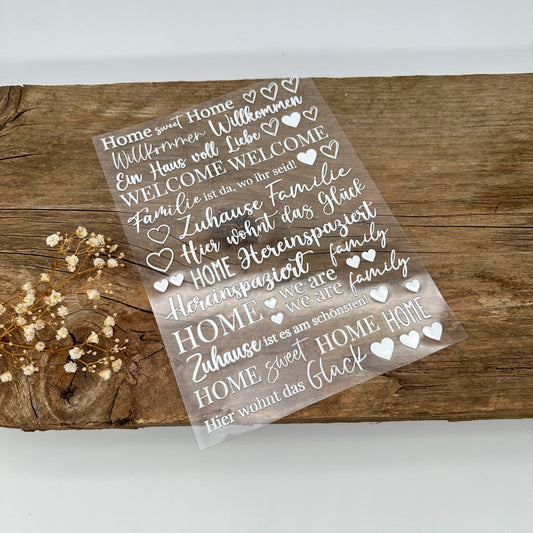 Home sweet Home
Willkommen Willkommen
Ein Haus voll Liebe
WELCOME WELCOME
Familie ist da, wo ihr seid!
Zuhause Familie
Hier wohnt das Glück
HOME Hereinspaziert
Hereinspaziert family
HOME we are family
we are
Zuhause ist es am schönsten!
HOME sweet HOME HOME
Hier wohnt das Glück